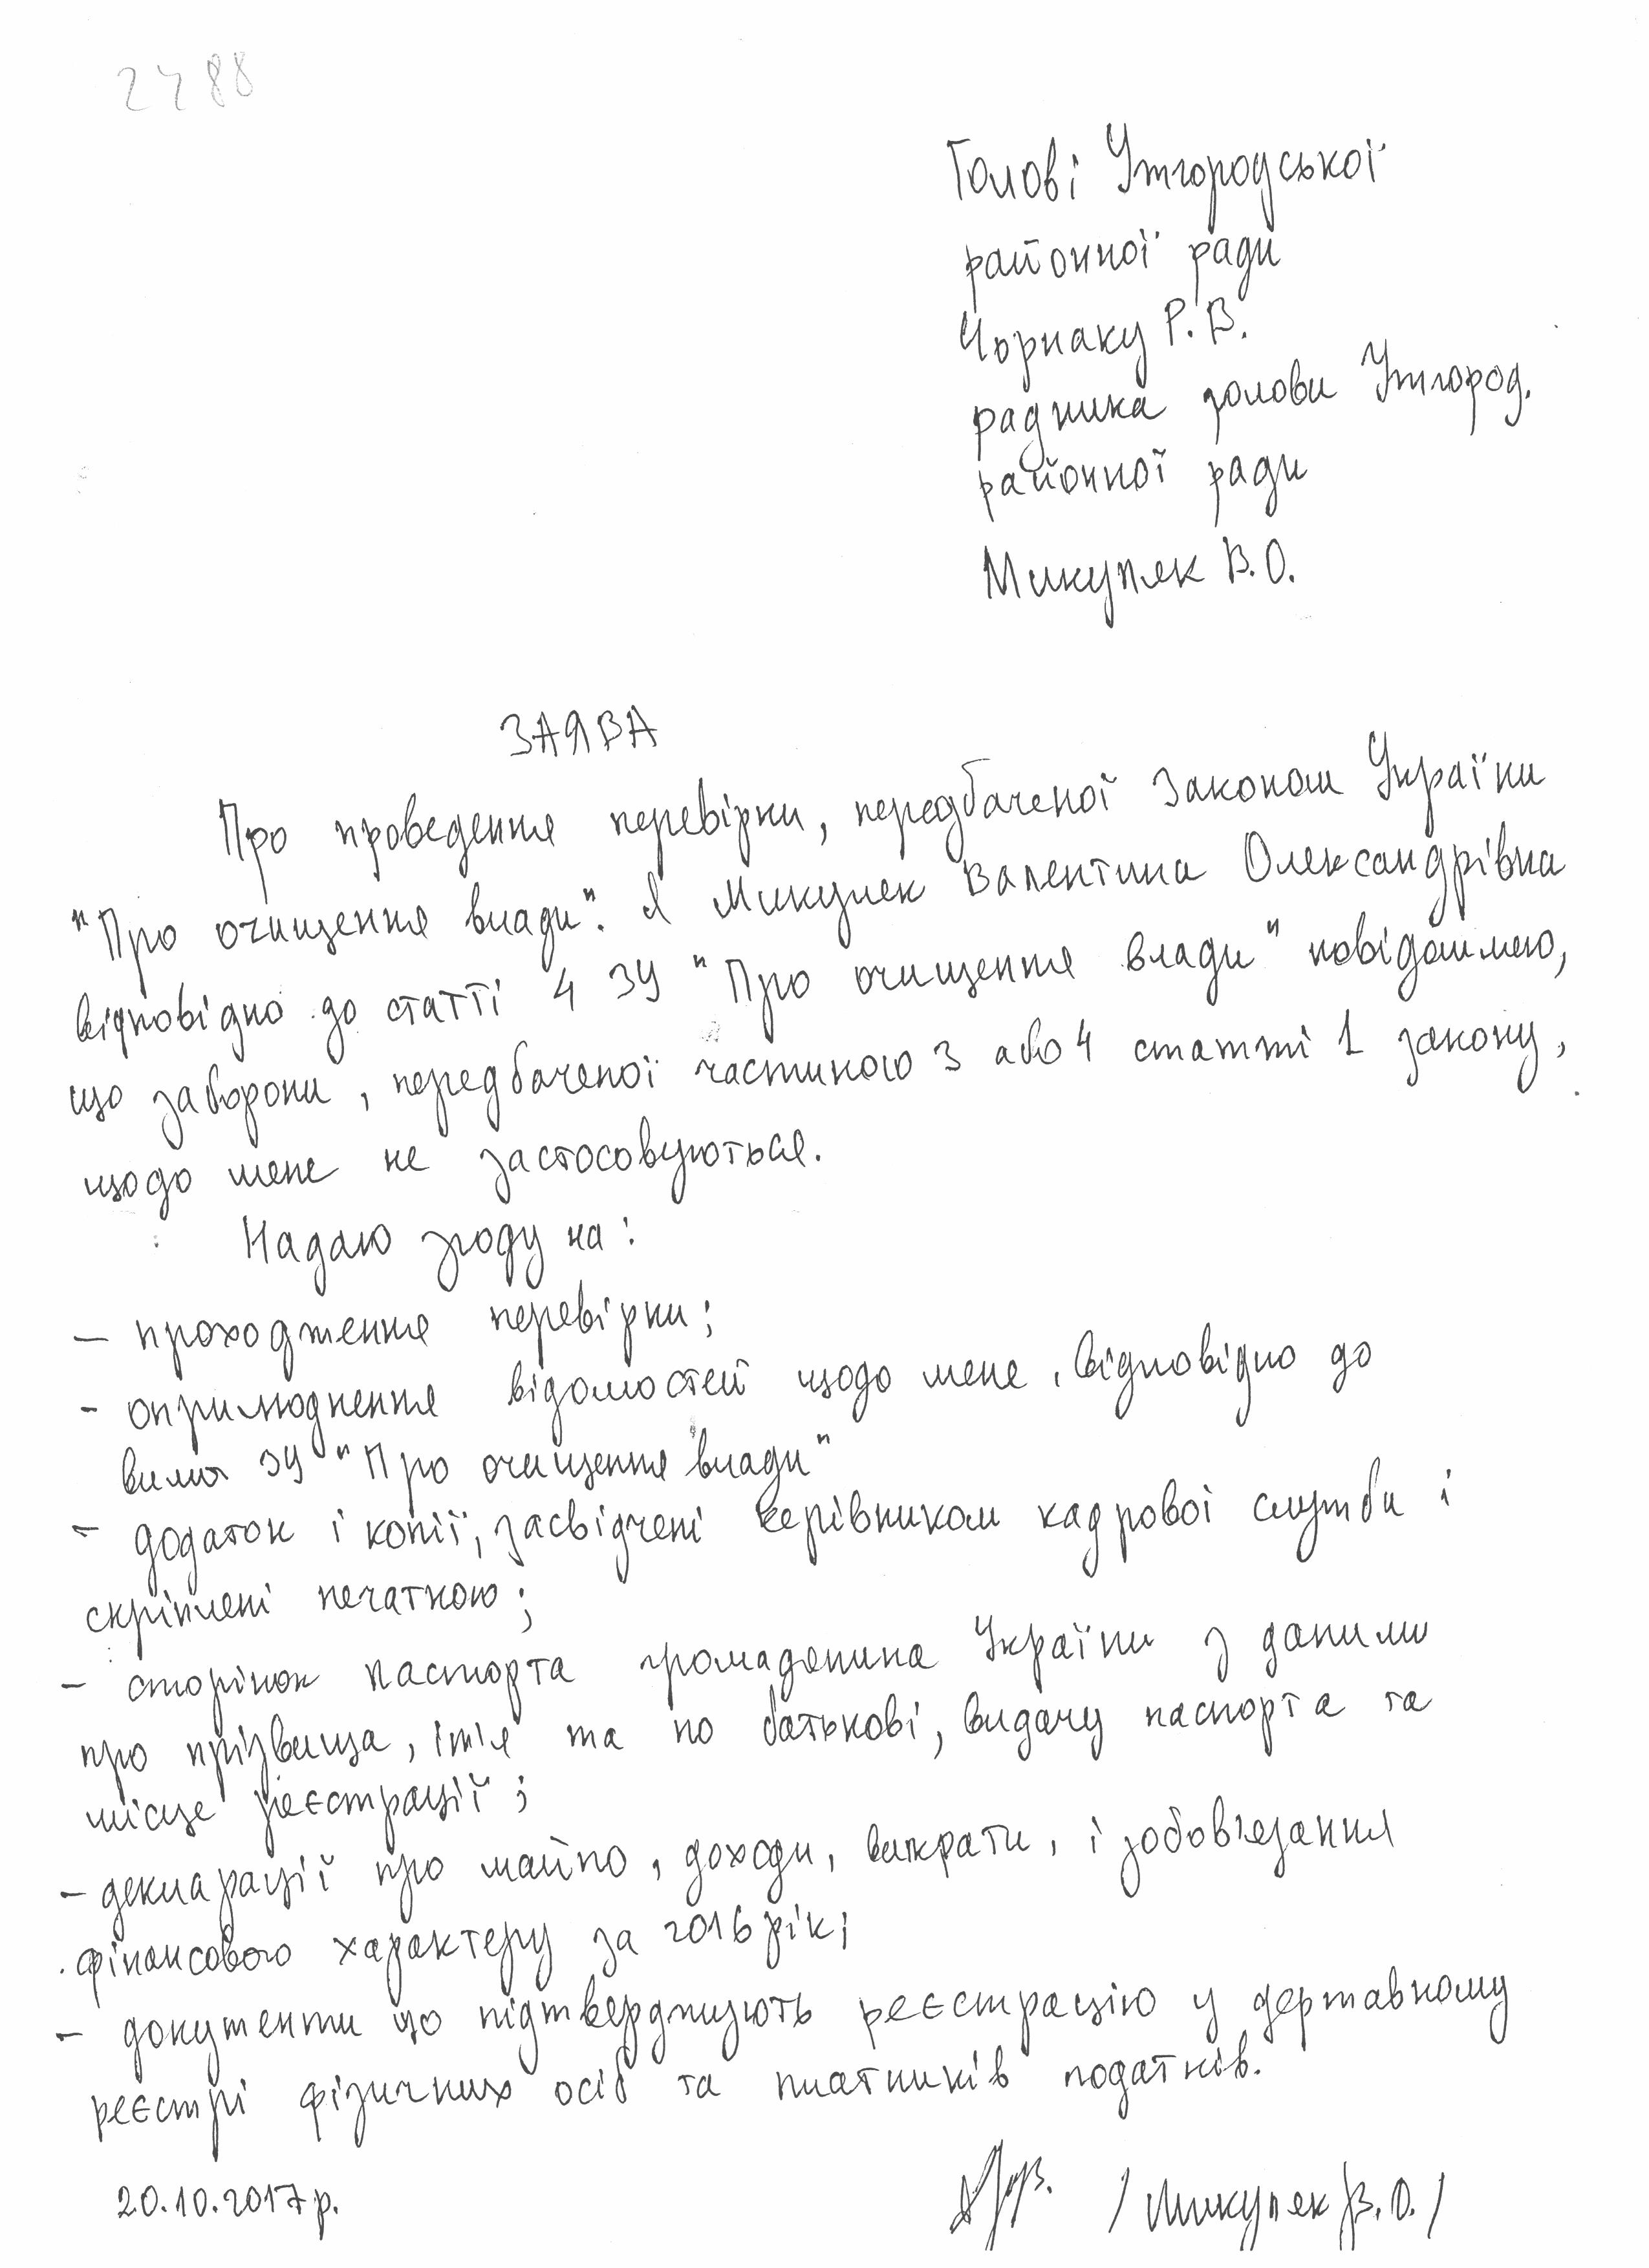 2488
Голові Ужгородської
районної ради
Чорнаку Р.В.
радника голови Ужгород.
районної ради
Микуляк В.О.
ЗАЯВА
Про проведення перевірки, передбаченої Законом України
"Про очищення влади". Я Микуляк Валентина Олександрівна
відповідно до статті 4 ЗУ "Про очищення влади" повідомляю,
що заборони, передбаченої частиною 3 або 4 статті 1 закону,
щодо мене не застосовуються.
Надаю згоду на:
– проходження перевірки;
- оприлюднення відомостей щодо мене, відповідно до
вимог ЗУ "Про очищення влади"
- додаток і копії, засвідчені керівником кадрової служби і
скріплені печаткою;
- сторінок паспорта громадянина України з даними
про прізвища, ім'я та по батькові, видачу паспорта та
місце реєстрації;
- декларації про майно, доходи, витрати, і зобов'язання
фінансового характеру за 2016 рік;
- документи що підтверджують реєстрацію у державному
реєстрі фізичних осіб та платників податків.
20.10.2017р.
/Микуляк В.О./